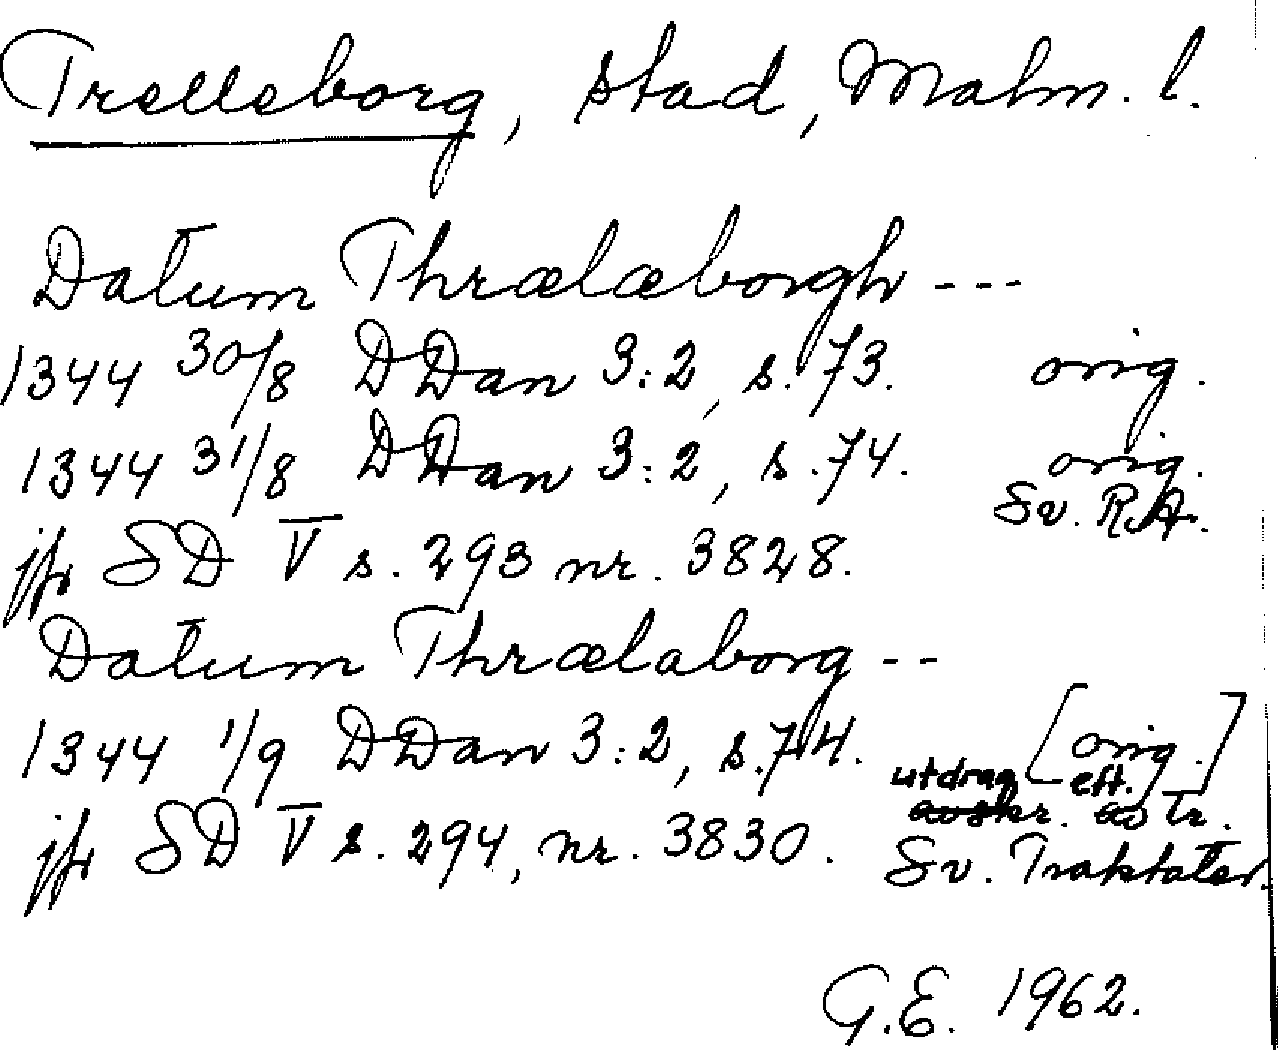 Trelleborg, stad, Malm. l.
Datum Thrælæborgh ---
1344 30/8 DDan 3:2, s. 73. orig.
1344 31/8 DDan 3:2, s. 74. orig.
Sv. R.A.
jfr SD V s. 293 nr. 3828.
Datum Thrælaborg --
1344 1/9 DDan 3:2, s. 74. [orig.]
utdrag eft.
jfr SD V s. 294, nr. 3830. avskr. tr.
Sv. Traktater.
G.E. 1962.